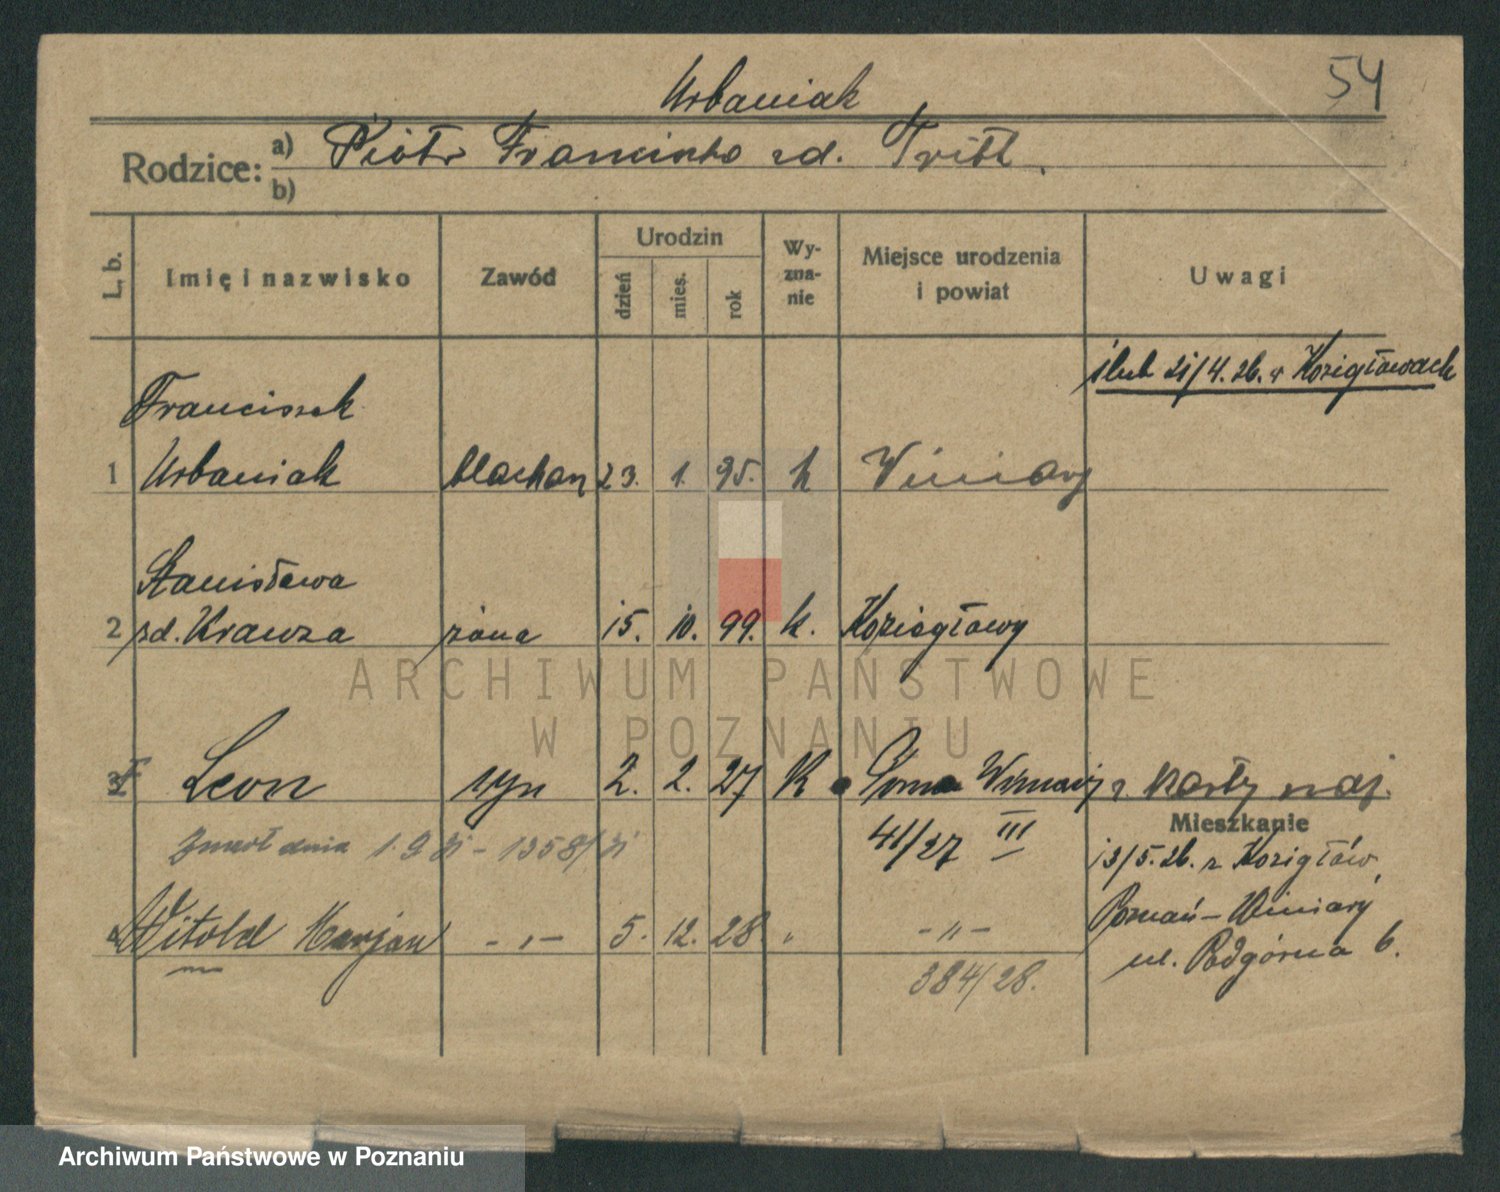 Urbaniak
54
Rodzice:
a) Piotr Franciszka zd. Tritt.
b)
L. b.
Imię i nazwisko
Zawód
Urodzin
dzień
mies.
rok
Wy-
zna-
nie
Miejsce urodzenia
i powiat
Uwagi
ślub 21/4.26. w Kozigłowach
Franciszek
1 Urbaniak blachan 23. 1. 95. k Winiary
Stanisława
2 zd. Krawza żona 15. 10. 99. k. Koziegłowy
3 Leon syn 2. 2. 27 k Winiary z karty
zmarł dnia 1.9 31 - 1358/31
41/27 III
Mieszkanie
13/5.26. z Kozigłów,
Poznań - Winiary
ul. Podgórna 6.
4 Witold Marjan - „ - 5. 12. 28 „ - „ -
384/28.
ARCHIWUM PAŃSTWOWE
W POZNANIU
Archiwum Państwowe w Poznaniu